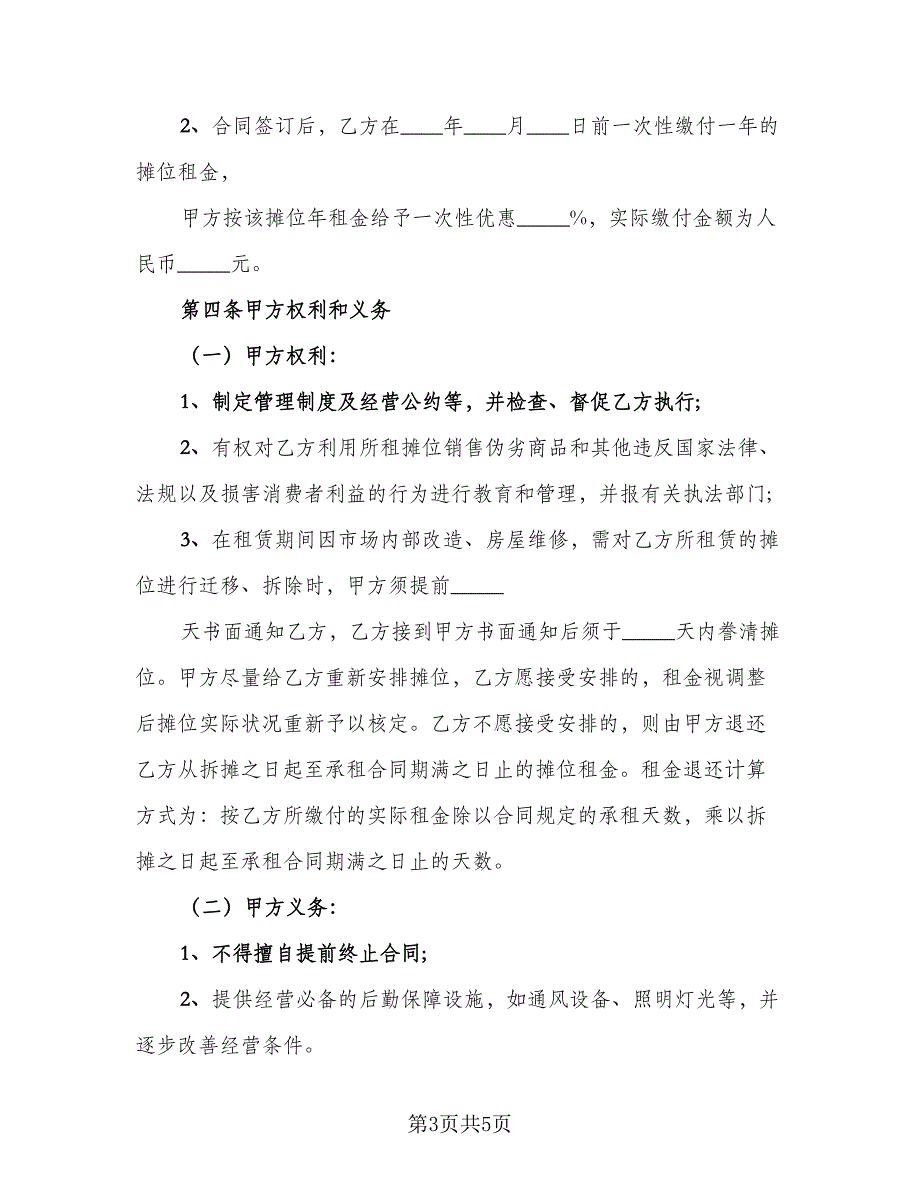 2、合同签订后，乙方在____年____月____日前一次性缴付一年的
摊位租金，
甲方按该摊位年租金给予一次性优惠_____%，实际缴付金额为人
民币_____元。
第四条甲方权利和义务
（一）甲方权利：
1、制定管理制度及经营公约等，并检查、督促乙方执行;
2、有权对乙方利用所租摊位销售伪劣商品和其他违反国家法律、
法规以及损害消费者利益的行为进行教育和管理，并报有关执法部门;
3、在租赁期间因市场内部改造、房屋维修，需对乙方所租赁的摊
位进行迁移、拆除时，甲方须提前_____
天书面通知乙方，乙方接到甲方书面通知后须于_____天内誊清摊
位。甲方尽量给乙方重新安排摊位，乙方愿接受安排的，租金视调整
后摊位实际状况重新予以核定。乙方不愿接受安排的，则由甲方退还
乙方从拆摊之日起至承租合同期满之日止的摊位租金。租金退还计算
方式为：按乙方所缴付的实际租金除以合同规定的承租天数，乘以拆
摊之日起至承租合同期满之日止的天数。
（二）甲方义务：
1、不得擅自提前终止合同;
2、提供经营必备的后勤保障设施，如通风设备、照明灯光等，并
逐步改善经营条件。
第3页共5页